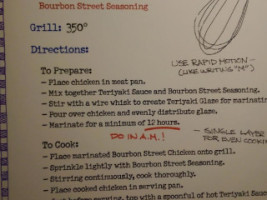 Bourbon Street Seasoning
Grill: 350°
Directions:
USE RAPID MOTION -
(LIKE WRITING "M")
To Prepare:
- Place chicken in meat pan.
- Mix together Teriyaki Sauce and Bourbon Street Seasoning.
- Stir with a wire whisk to create Teriyaki Glaze for marinating
- Pour over chicken and evenly distribute glaze.
- Marinate for a minimum of 12 hours.
DO IN A.M.!
- SINGLE LAYER
FOR EVEN COOKING
To Cook:
- Place marinated Bourbon Street Chicken onto grill.
- Sprinkle lightly with Bourbon Street Seasoning.
- Stirring continuously, cook thoroughly.
- Place cooked chicken in serving pan.
before serving, top with a spoonful of hot Teriyaki Sauce